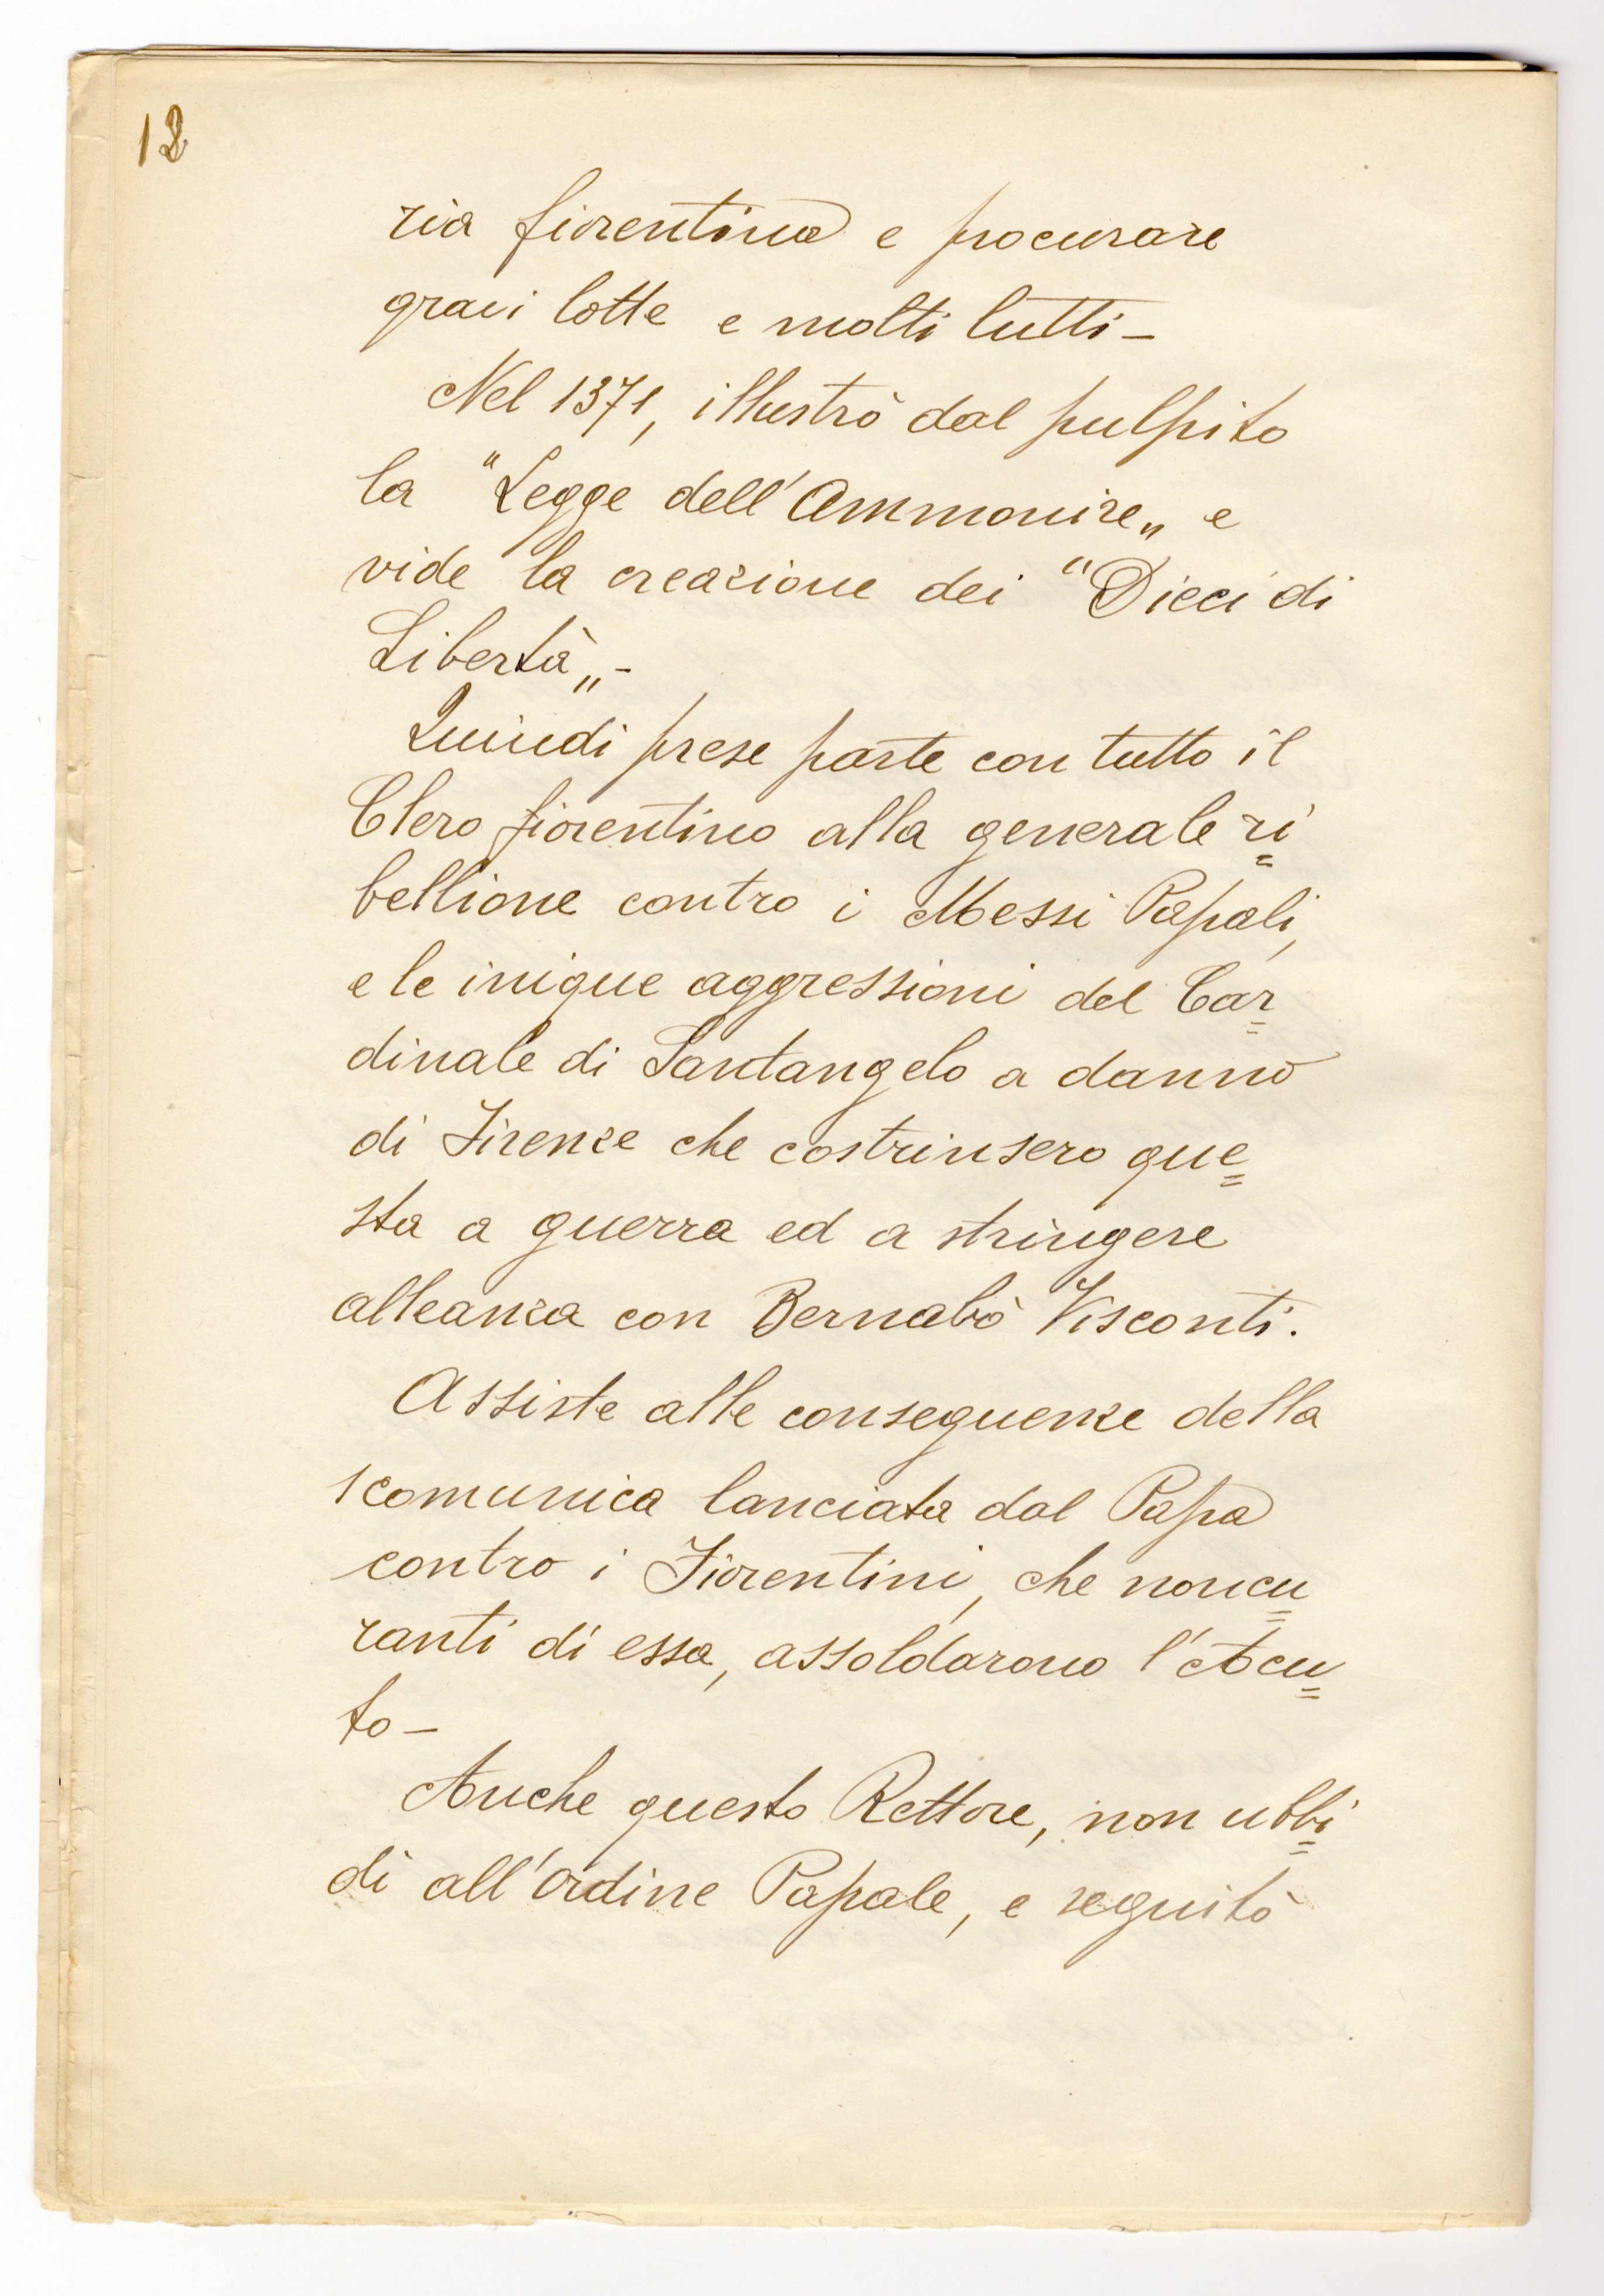 12
ria fiorentina e procurare
gravi lotte e molti lutti –
Nel 1371, illustrò dal pulpito
la "Legge dell'Ammonire„ e
vide la creazione dei "Dieci di
Libertà„ –
Quindi prese parte con tutto il
Clero fiorentino alla generale ri=
bellione contro i Messi Papali,
e le inique aggressioni del Car=
dinale di Santangelo a danno
di Firenze che costrinsero que=
sta a guerra ed a stringere
alleanza con Bernabò Visconti.
Assiste alle conseguenze della
scomunica lanciata dal Papa
contro i Fiorentini, che noncu=
ranti di essa, assoldarono l'Acu=
to –
Anche questo Rettore, non ubbi=
dì all'ordine Papale, e seguitò